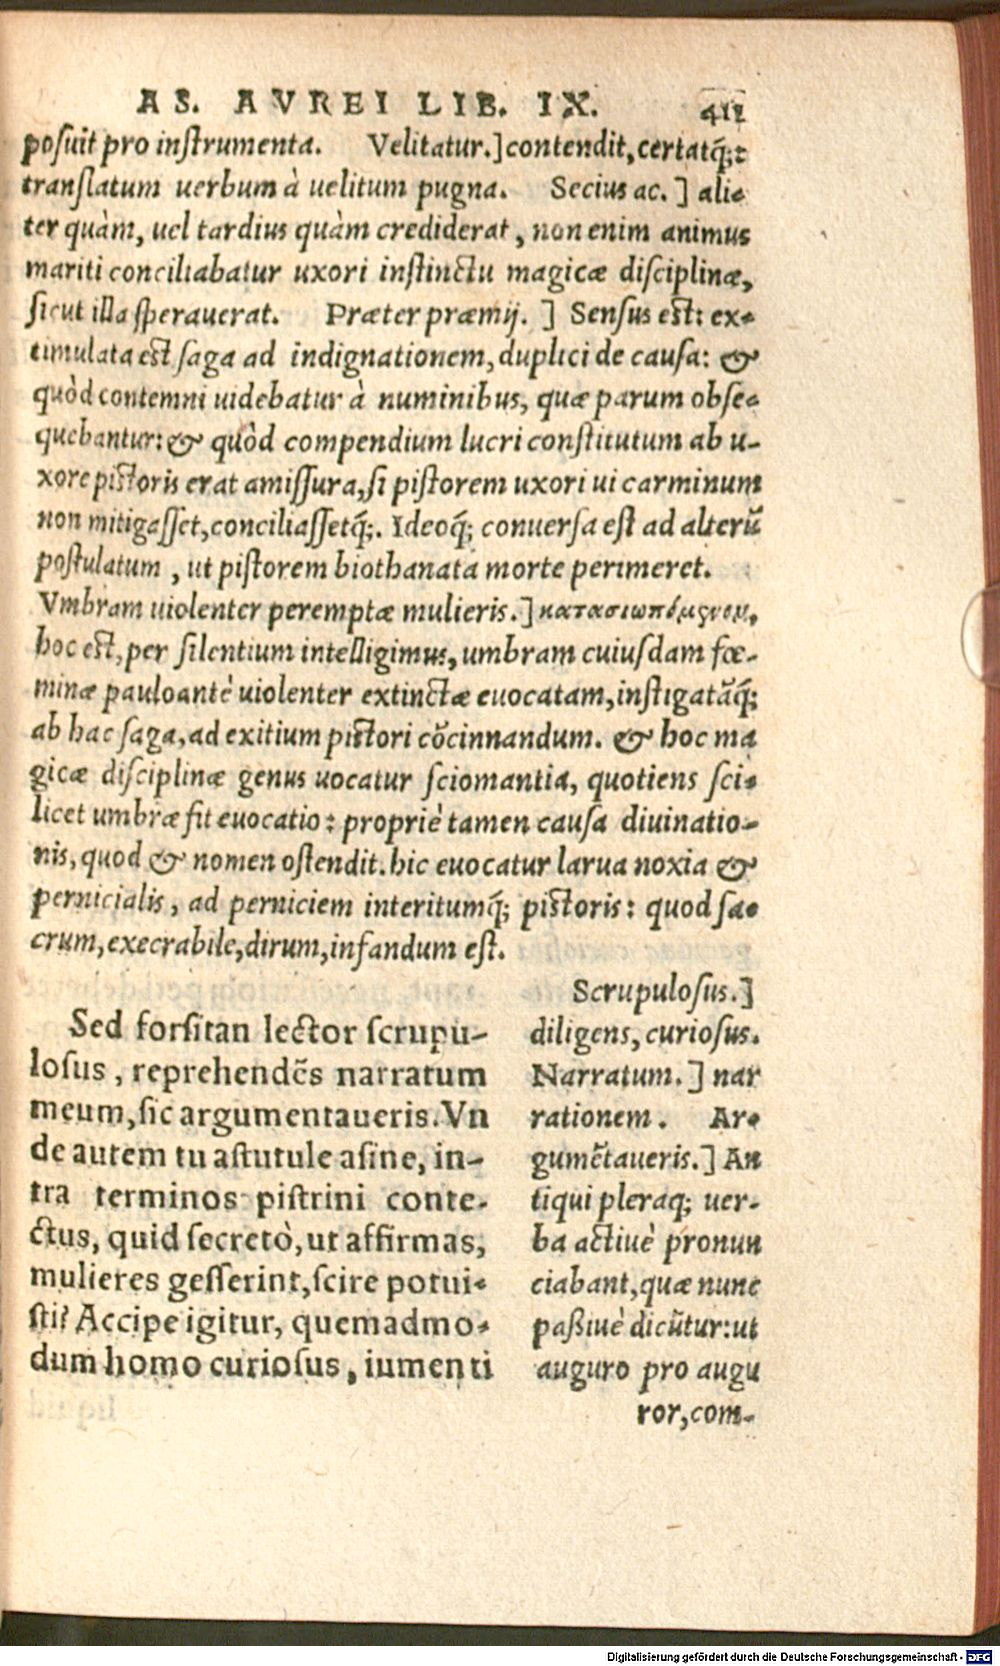 AS. AVREI LIB. IX. 411
posuit pro instrumenta. Velitatur.] contendit, certatq́;:
translatum uerbum à uelitum pugna. Secius ac. ] ali-
ter quàm, uel tardius quàm crediderat, non enim animus
mariti conciliabatur uxori instinctu magicæ disciplinæ,
sicut illa sperauerat. Præter præmij. ] Sensus est: ex-
timulata est saga ad indignationem, duplici de causa: &
quòd contemni uidebatur à numinibus, quæ parum obse-
quebantur: & quòd compendium lucri constitutum ab u-
xore pistoris erat amissura, si pistorem uxori ui carminum
non mitigasset, conciliassetq́;. Ideoq́; conuersa est ad alterũ
postulatum, ut pistorem biothanata morte perimeret.
Vmbram uiolenter peremptæ mulieris.] κατασιωπόμενον,
hoc est, per silentium intelligimus, umbram cuiusdam fœ-
minæ pauloantè uiolenter extinctæ euocatam, instigatãq́;
ab hac saga, ad exitium pistori cõcinnandum. & hoc ma
gicæ disciplinæ genus uocatur sciomantia, quotiens sci-
licet umbræ fit euocatio: propriè tamen causa diuinatio-
nis, quod & nomen ostendit. hic euocatur larua noxia &
pernicialis, ad perniciem interitumq́; pistoris: quod sa-
crum, execrabile, dirum, infandum est.
Sed forsitan lector scrupu-
losus, reprehendẽs narratum
meum, sic argumentaueris. Vn
de autem tu astutule asine, in-
tra terminos pistrini conte-
ctus, quid secretò, ut affirmas,
mulieres gesserint, scire potui-
sti? Accipe igitur, quemadmo-
dum homo curiosus, iumenti
Scrupulosus.]
diligens, curiosus.
Narratum. ] nar
rationem. Ar-
gumẽtaueris.] An
tiqui pleraq; uer-
ba actiuè pronun
ciabant, quæ nunc
paßiuè dicũtur: ut
auguro pro augu
ror, com-
Digitalisierung gefördert durch die Deutsche Forschungsgemeinschaft - DFG